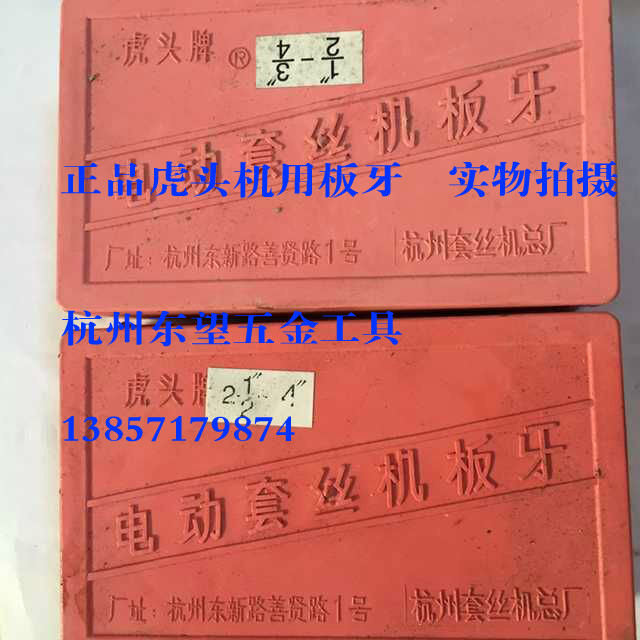 虎头牌 ® 1/2"-3/4"
电动套丝机板牙
正品虎头机用板牙 实物拍摄
厂址：杭州东新路善贤路1号 杭州套丝机总厂
杭州东望五金工具
虎头牌 2 1/2" 4"
13857179874
电动套丝机板牙
厂址：杭州东新路善贤路1号 杭州套丝机总厂